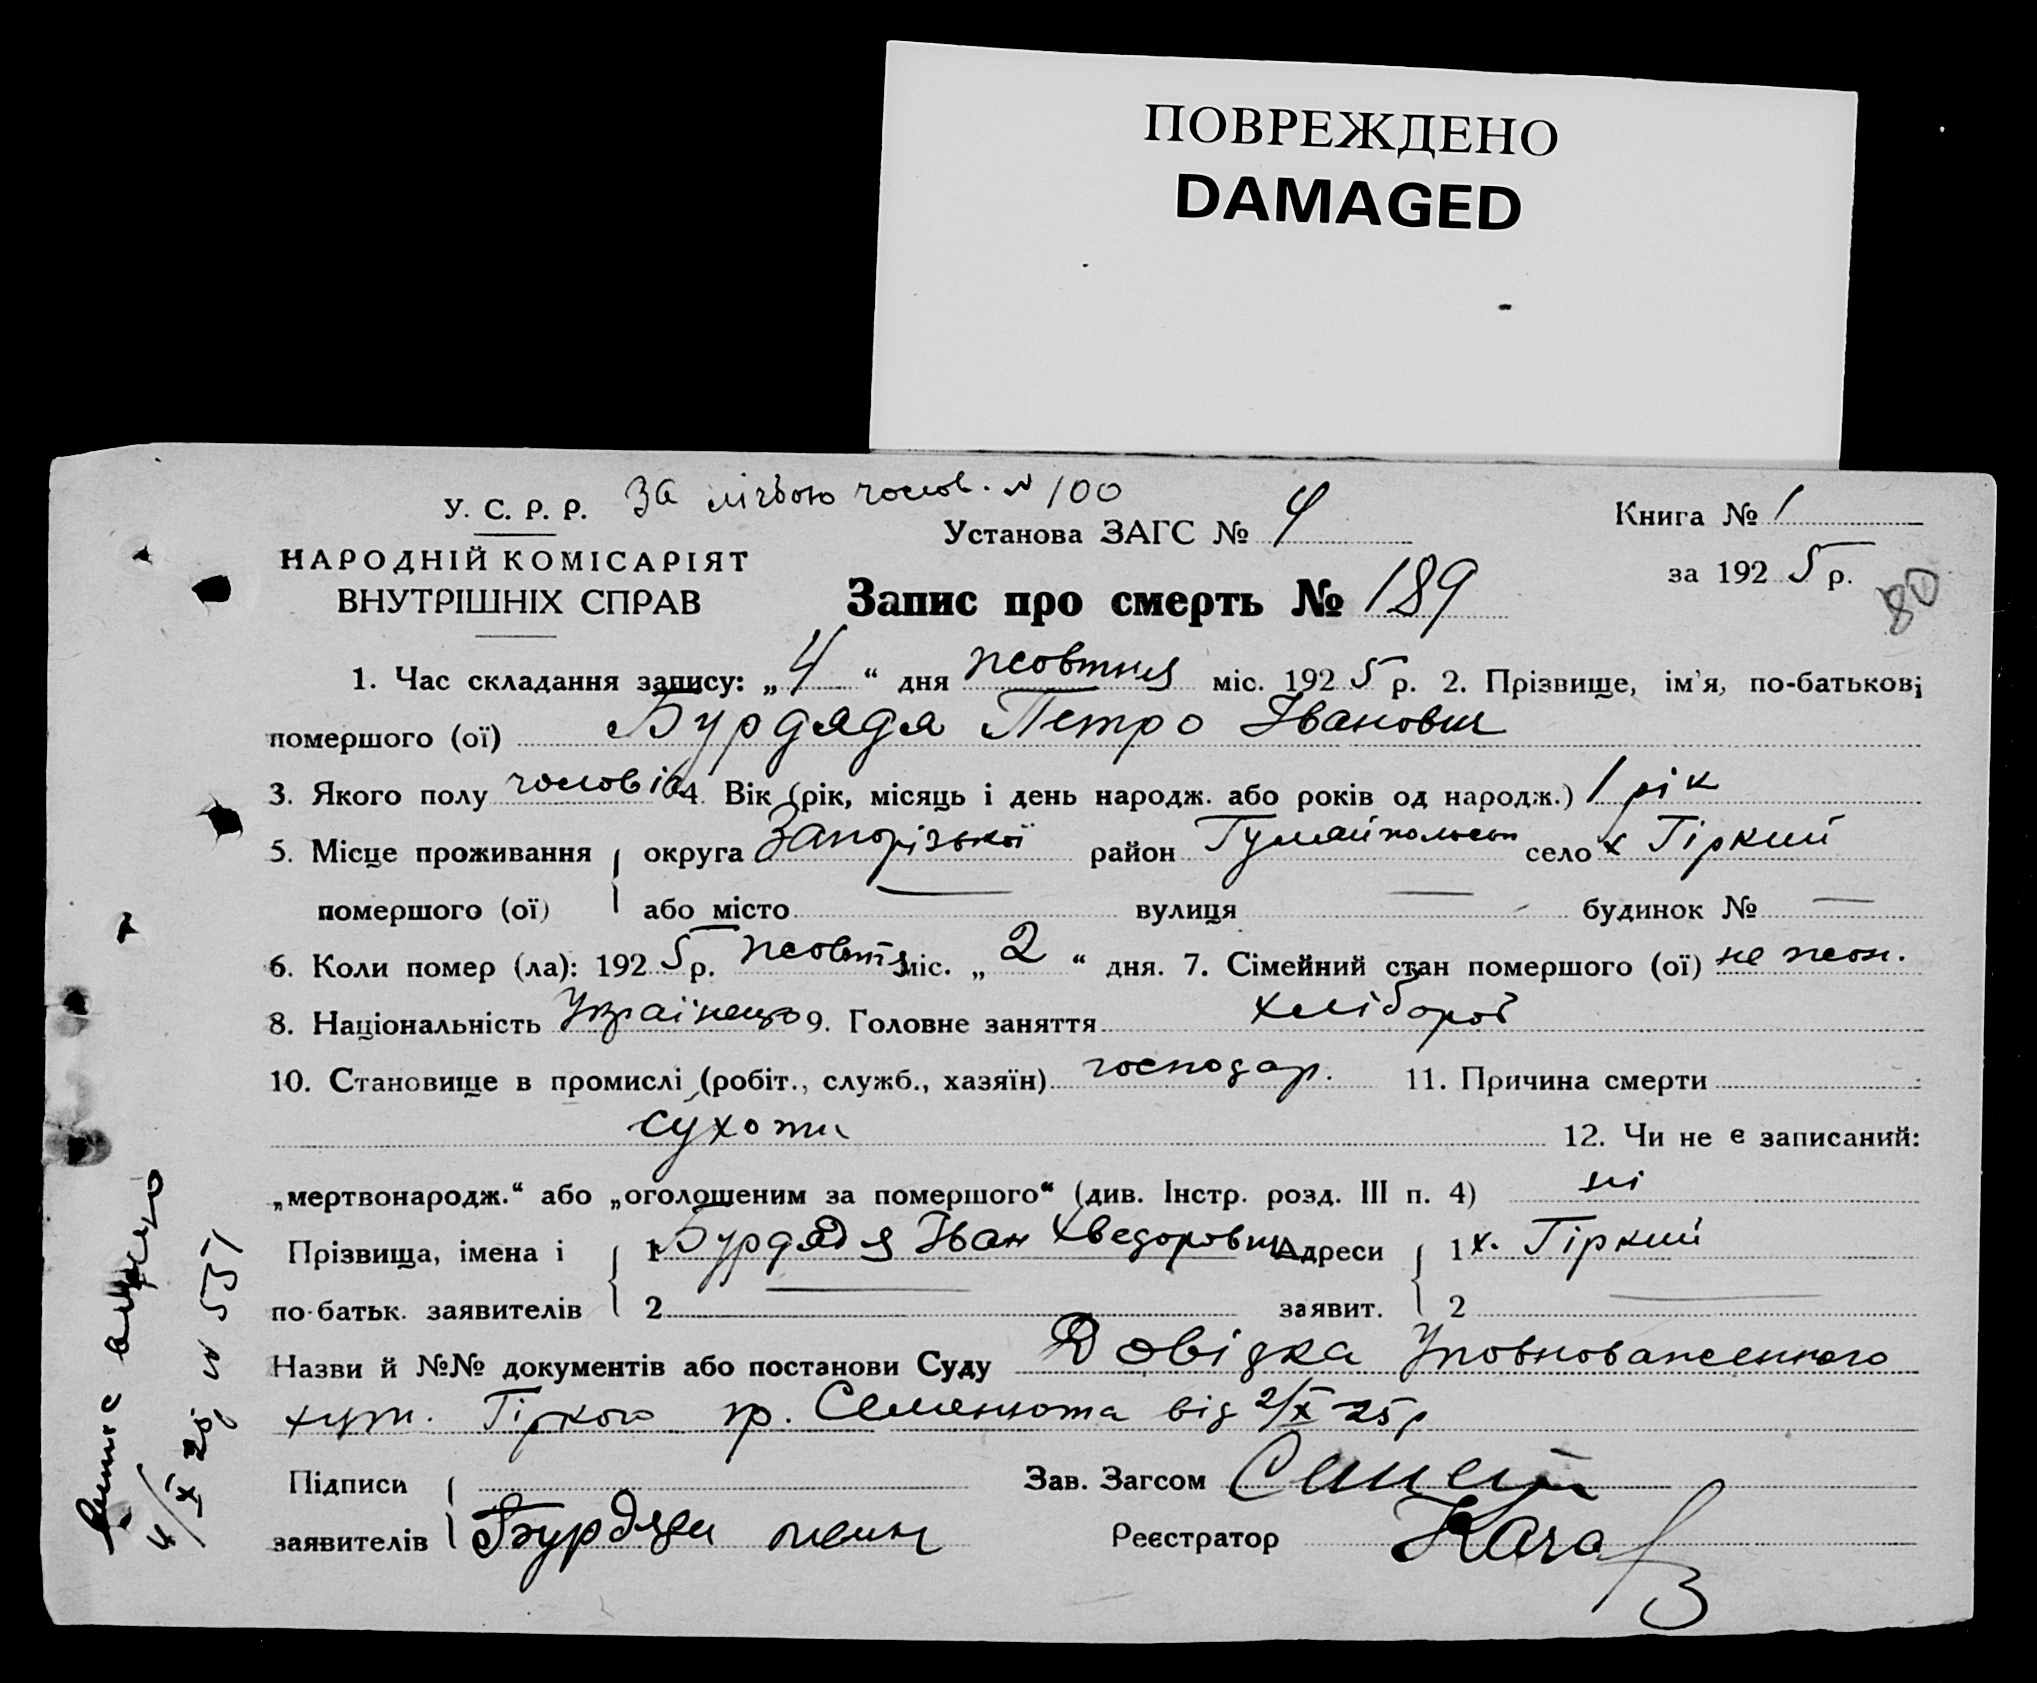 ПОВРЕЖДЕНО
DAMAGED
У. С. Р. Р. За лічбою чолов. № 100
Установа ЗАГС № 4
Книга № 1
НАРОДНІЙ КОМІСАРІЯТ
ВНУТРІШНІХ СПРАВ
за 1925 р.
80
Запис про смерть № 189
1. Час складання запису: „4“ дня жовтня міс. 1925 р. 2. Прізвище, ім'я, по-батькові
помершого (ої) Бурдядя Петро Іванович
3. Якого полу чоловіч 4. Вік (рік, місяць і день народж. або років од народж.) 1 рік
5. Місце проживання округа Запорізької район Гуляйпольськ село х Гіркий
помершого (ої) або місто — вулиця — будинок № —
6. Коли помер (ла): 1925 р. жовтня міс. „2“ дня. 7. Сімейний стан помершого (ої) не жон.
8. Національність Українець 9. Головне заняття хлібороб
10. Становище в промислі (робіт., служб., хазяїн) господар. 11. Причина смерти
сухоти 12. Чи не є записаний:
„мертвонародж.“ або „оголошеним за помершого“ (див. Інстр. розд. III п. 4) ні
Прізвища, імена і 1 Бурдядя Іван Хведорович Адреси 1 х. Гіркий
по-батьк. заявителів 2 — заявит. 2 —
Назви й №№ документів або постанови Суду Довідка Уповноваженного
хут. Гіркого гр. Семенюта від 2/X 25 р
Підписи Зав. Загсом
заявителів Бурдядя Реєстратор
4/X 25 р № 551